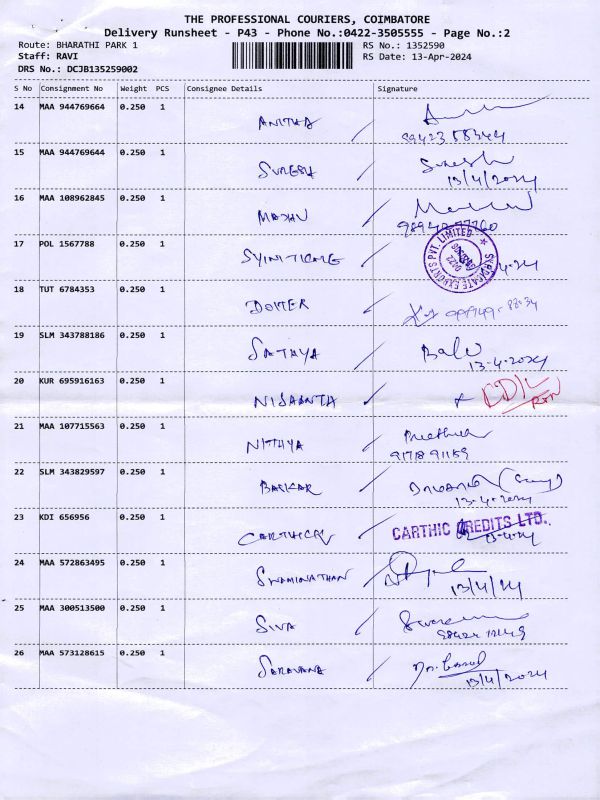 THE PROFESSIONAL COURIERS, COIMBATORE
Delivery Runsheet - P43 - Phone No.:0422-3505555 - Page No.:2
Route: BHARATHI PARK 1 RS No.: 1352590
Staff: RAVI RS Date: 13-Apr-2024
DRS No.: DCJB135259002
S No Consignment No Weight PCS Consignee Details Signature
14 MAA 944769664 0.250 1
ANITHA
89423 58344
15 MAA 944769644 0.250 1
SURESH Suresh
13/4/2024
16 MAA 108962845 0.250 1
MADHU
17 POL 1567788 0.250 1
SYINTICATE SYNDICATE EXPORTS PVT. LIMITED
18 TUT 6784353 0.250 1
19 SLM 343788186 0.250 1
SATHYA Balu
13-4-2024
20 KUR 695916163 0.250 1
NISAANTA
21 MAA 107715563 0.250 1
NITHYA
22 SLM 343829597 0.250 1
BASKAR
13-4-2024
23 KDI 656956 0.250 1
CARTHIC CREDITS LTD.
24 MAA 572863495 0.250 1
SWAMINATHAN
13/4/24
25 MAA 300513500 0.250 1
SIVA
26 MAA 573128615 0.250 1
SARAVANA
13/4/2024